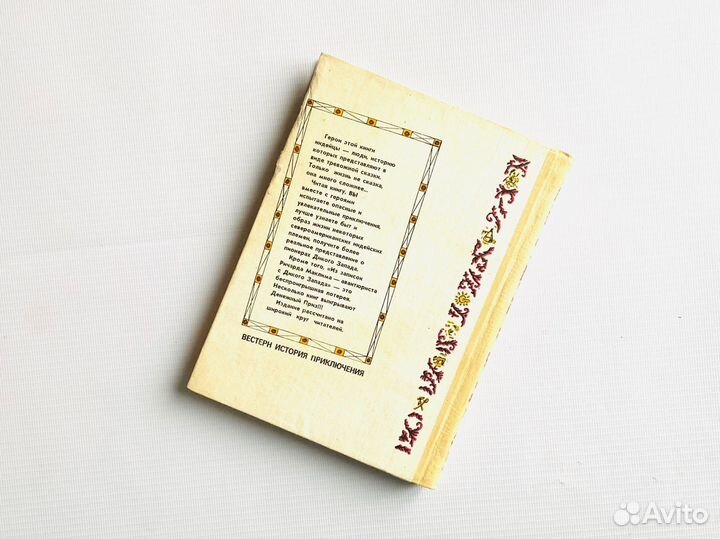 Герои этой книги
индейцы — люди, историю
которых представляют в
виде тревожной сказки.
Только жизнь не сказка,
она много сложнее...
Читая книгу, ВЫ
вместе с героями
испытаете опасные и
увлекательные приключения,
лучше узнаете быт и
образ жизни некоторых
североамериканских индейских
племен, получите более
реальное представление о
пионерах Дикого Запада.
Кроме того, «Из записок
Ричарда Маклина — авантюриста
с Дикого Запада» — это
беспроигрышная лотерея.
Несколько книг выигрывают
Денежный Приз!!!
Издание рассчитано на
широкий круг читателей.
ВЕСТЕРН ИСТОРИЯ ПРИКЛЮЧЕНИЯ
Avito